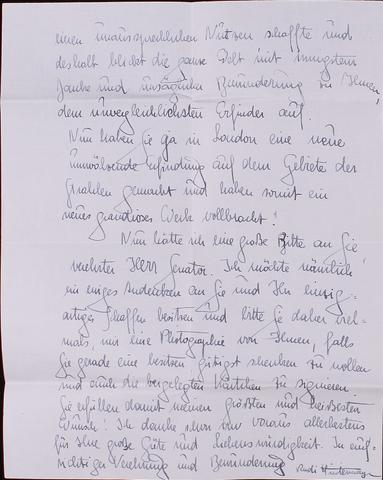 einen unaussprechlichen Nutzen schaffte und
deshalb blickt die ganze Welt mit innigstem
Danke und unsäglicher Bewunderung zu Ihnen,
dem unvergleichlichsten Erfinder auf.
Nun haben Sie ja in London eine neue
umwälzende Erfindung auf dem Gebiete der
Strahlen gemacht und haben somit ein
neues grandioses Werk vollbracht!
Nun hätte ich eine große Bitte an Sie
verehrter Herr Senator. Ich möchte nämlich
ein ewiges Andenken an Sie und Ihr einzig-
artiges Schaffen besitzen und bitte Sie daher viel-
mals, mir eine Photographie von Ihnen, falls
Sie gerade eine besitzen, gütigst schenken zu wollen
und auch die beigelegten Kärtchen zu signieren.
Sie erfüllen damit meinen größten und heißesten
Wunsch! Ich danke schon im voraus allerbestens
für Ihre große Güte und Liebenswürdigkeit. In auf-
richtiger Verehrung und Bewunderung Rudi